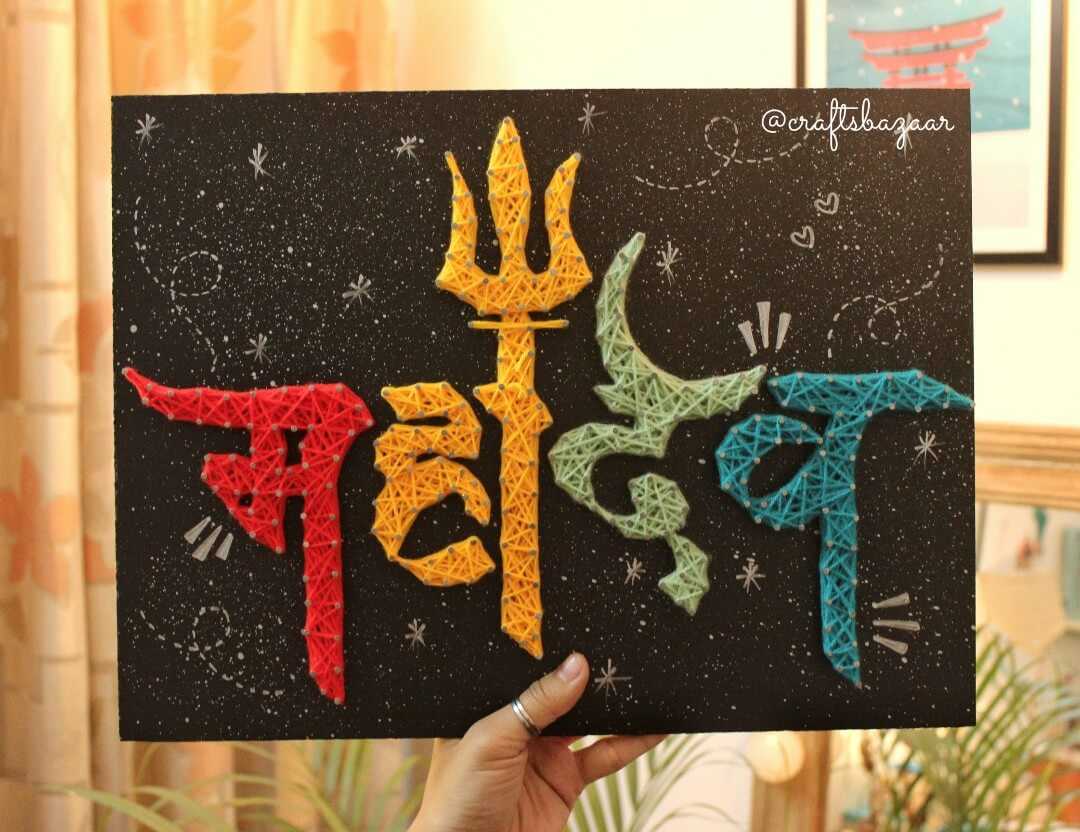 @craftsbazaar
महादेव